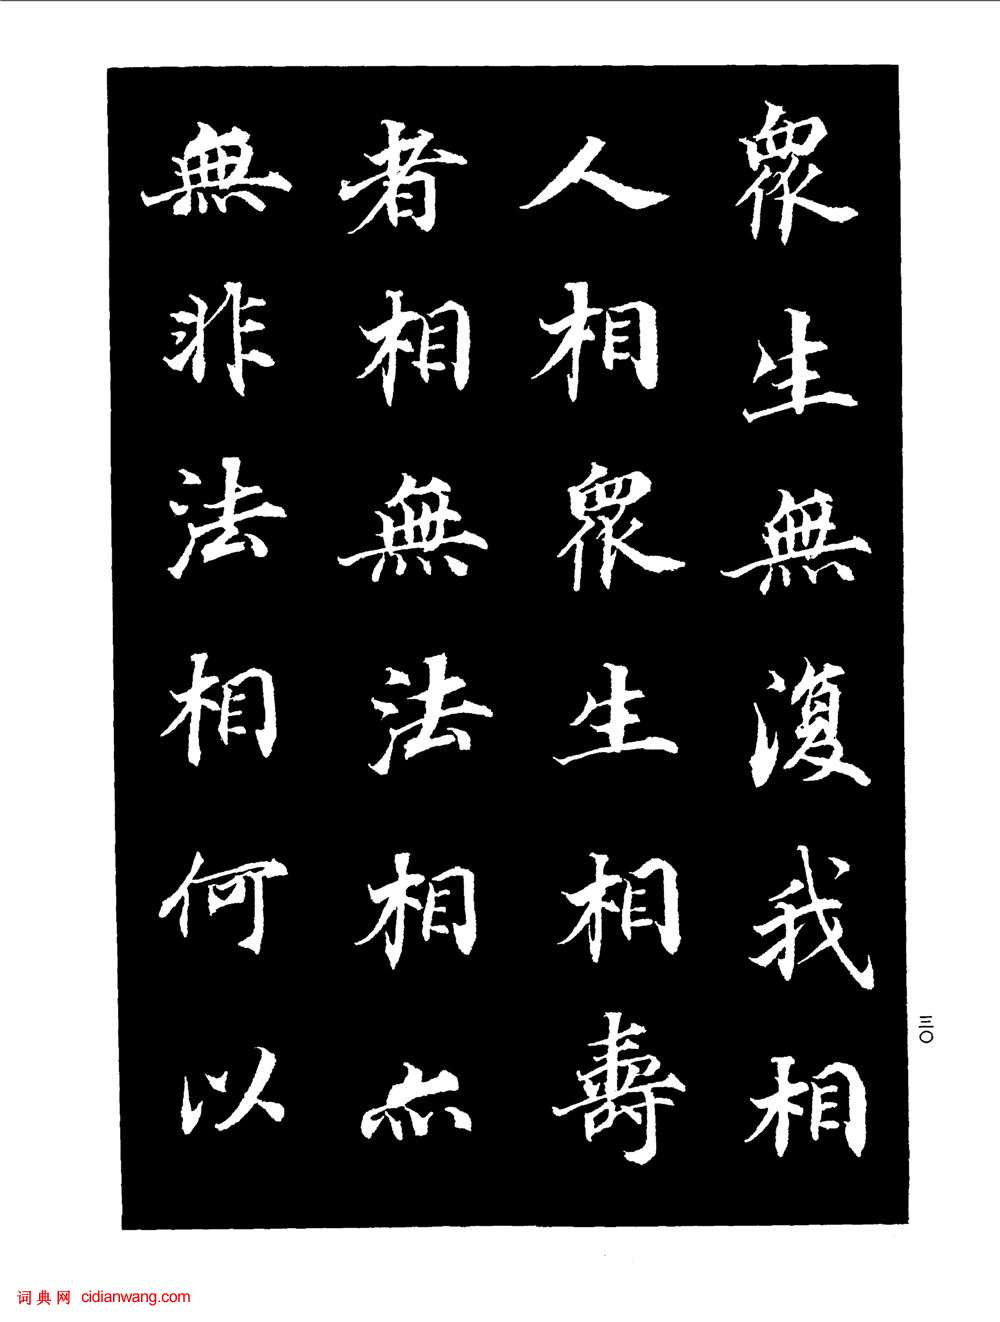 眾生無復我相
人相眾生相壽
者相無法相亦
無非法相何以
三〇
词典网 cidianwang.com